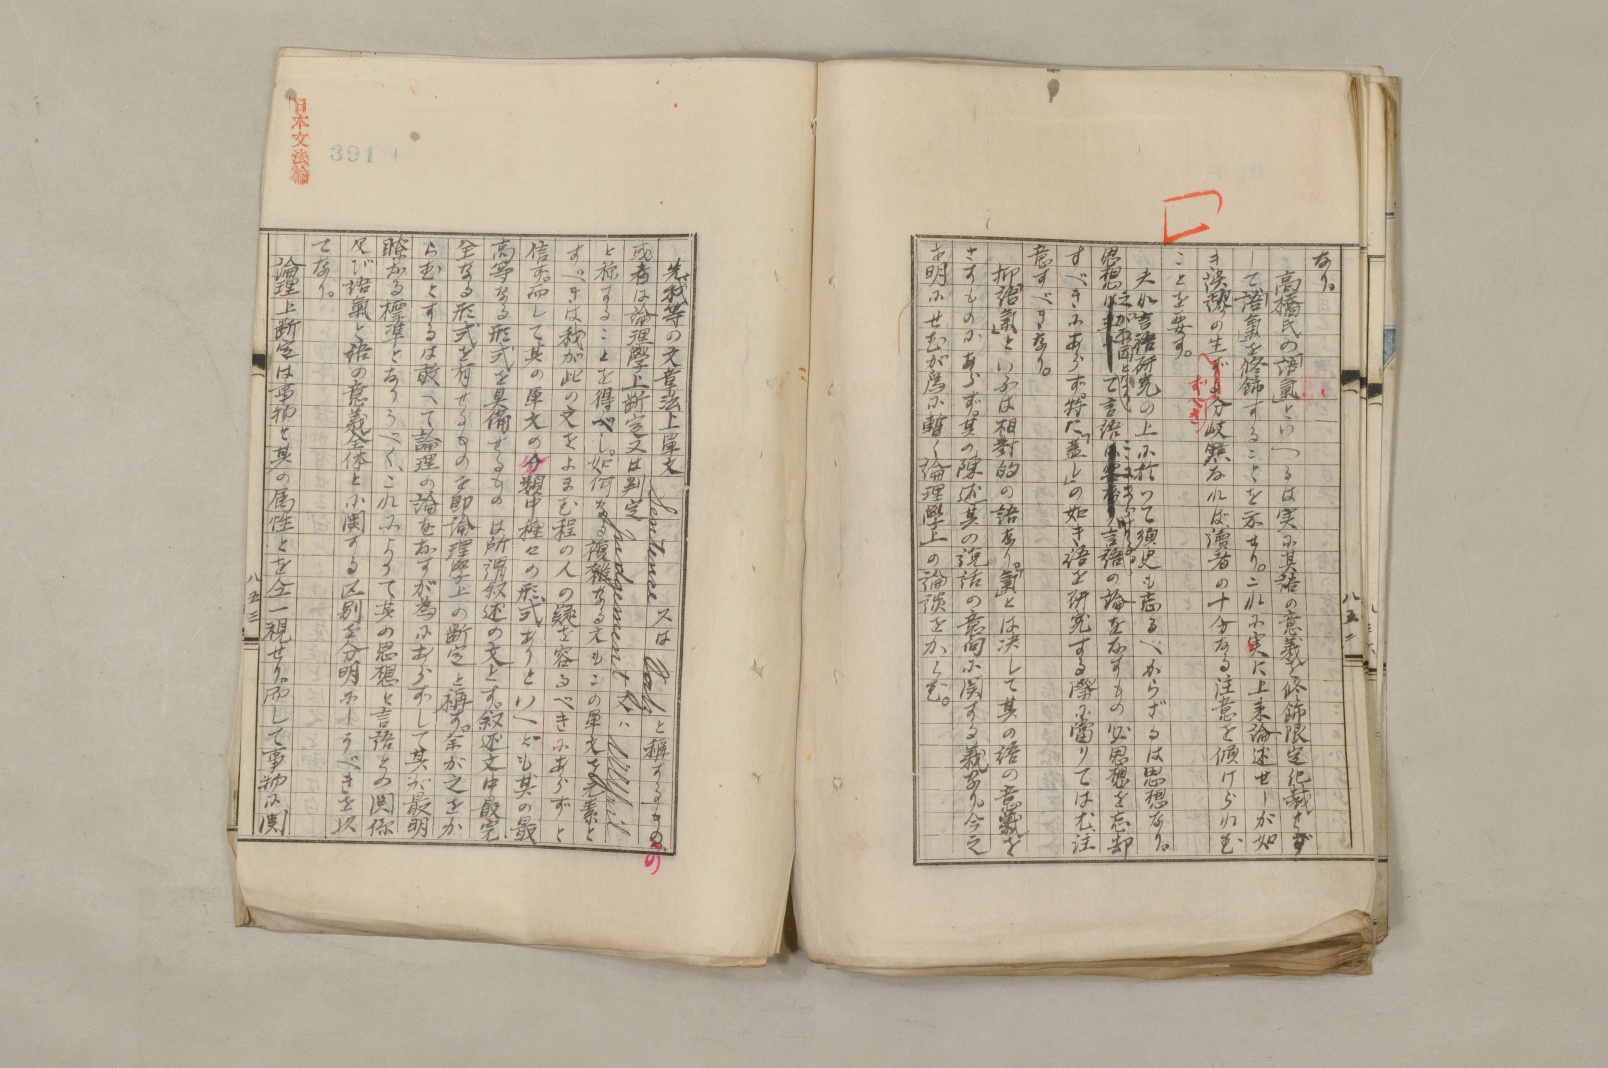 なり。
高橋氏の「語氣」といへるは実に其語の意義を修飾限定
して語氣を修飾することを示せり。これ実に上来論述せしが如
き誤謬の生ずべき分岐点なれば讀者の十分なる注意を傾けられむ
ことを要す。
夫れ言語研究の上に於いて須臾も忘るべからざるは思想なり。
思想
て言語
言語の論をなすもの必思想を忘却
すべきにあらず。特に「蓋し」の如き語を研究する際に當りては尤注
意すべきなり。
抑「語氣」といふは相對的の語なり。「氣」とは決して其の語の意義を
さすものにあらず。其の陳述其の説話の意向に関する義なり。今之
を明にせむが為に暫く論理學上の論談をからむ。
八五二
日本文法論
391
先我等の文章法上単文 Sentence 又は と稱するもの
或者は論理學上断定又は判定 Judgement 又は Urtheil
と稱することを得べし。如何なる複雑なる文もこの単文を元素と
すべきは我が此の文をよまむ程の人の疑を容るべきにあらずと
信ず。而して其の単文の分類中種々の形式ありといへども其の最
高等なる形式を具備せるものは所謂叙述の文とす。叙述文中最完
全なる形式を有せるものを即論理學上の断定と稱す。余が之をか
らむとするは敢へて論理の論をなすが為にあらずして其が最明
瞭なる標準となりうべく、これによりて其の思想と言語との関係
及び語氣と語の意義全体とに関する区別を分明にしうべきを以
てなり。
論理上断定は事物と其の属性とを全一視せり。而して事物に関
八五三